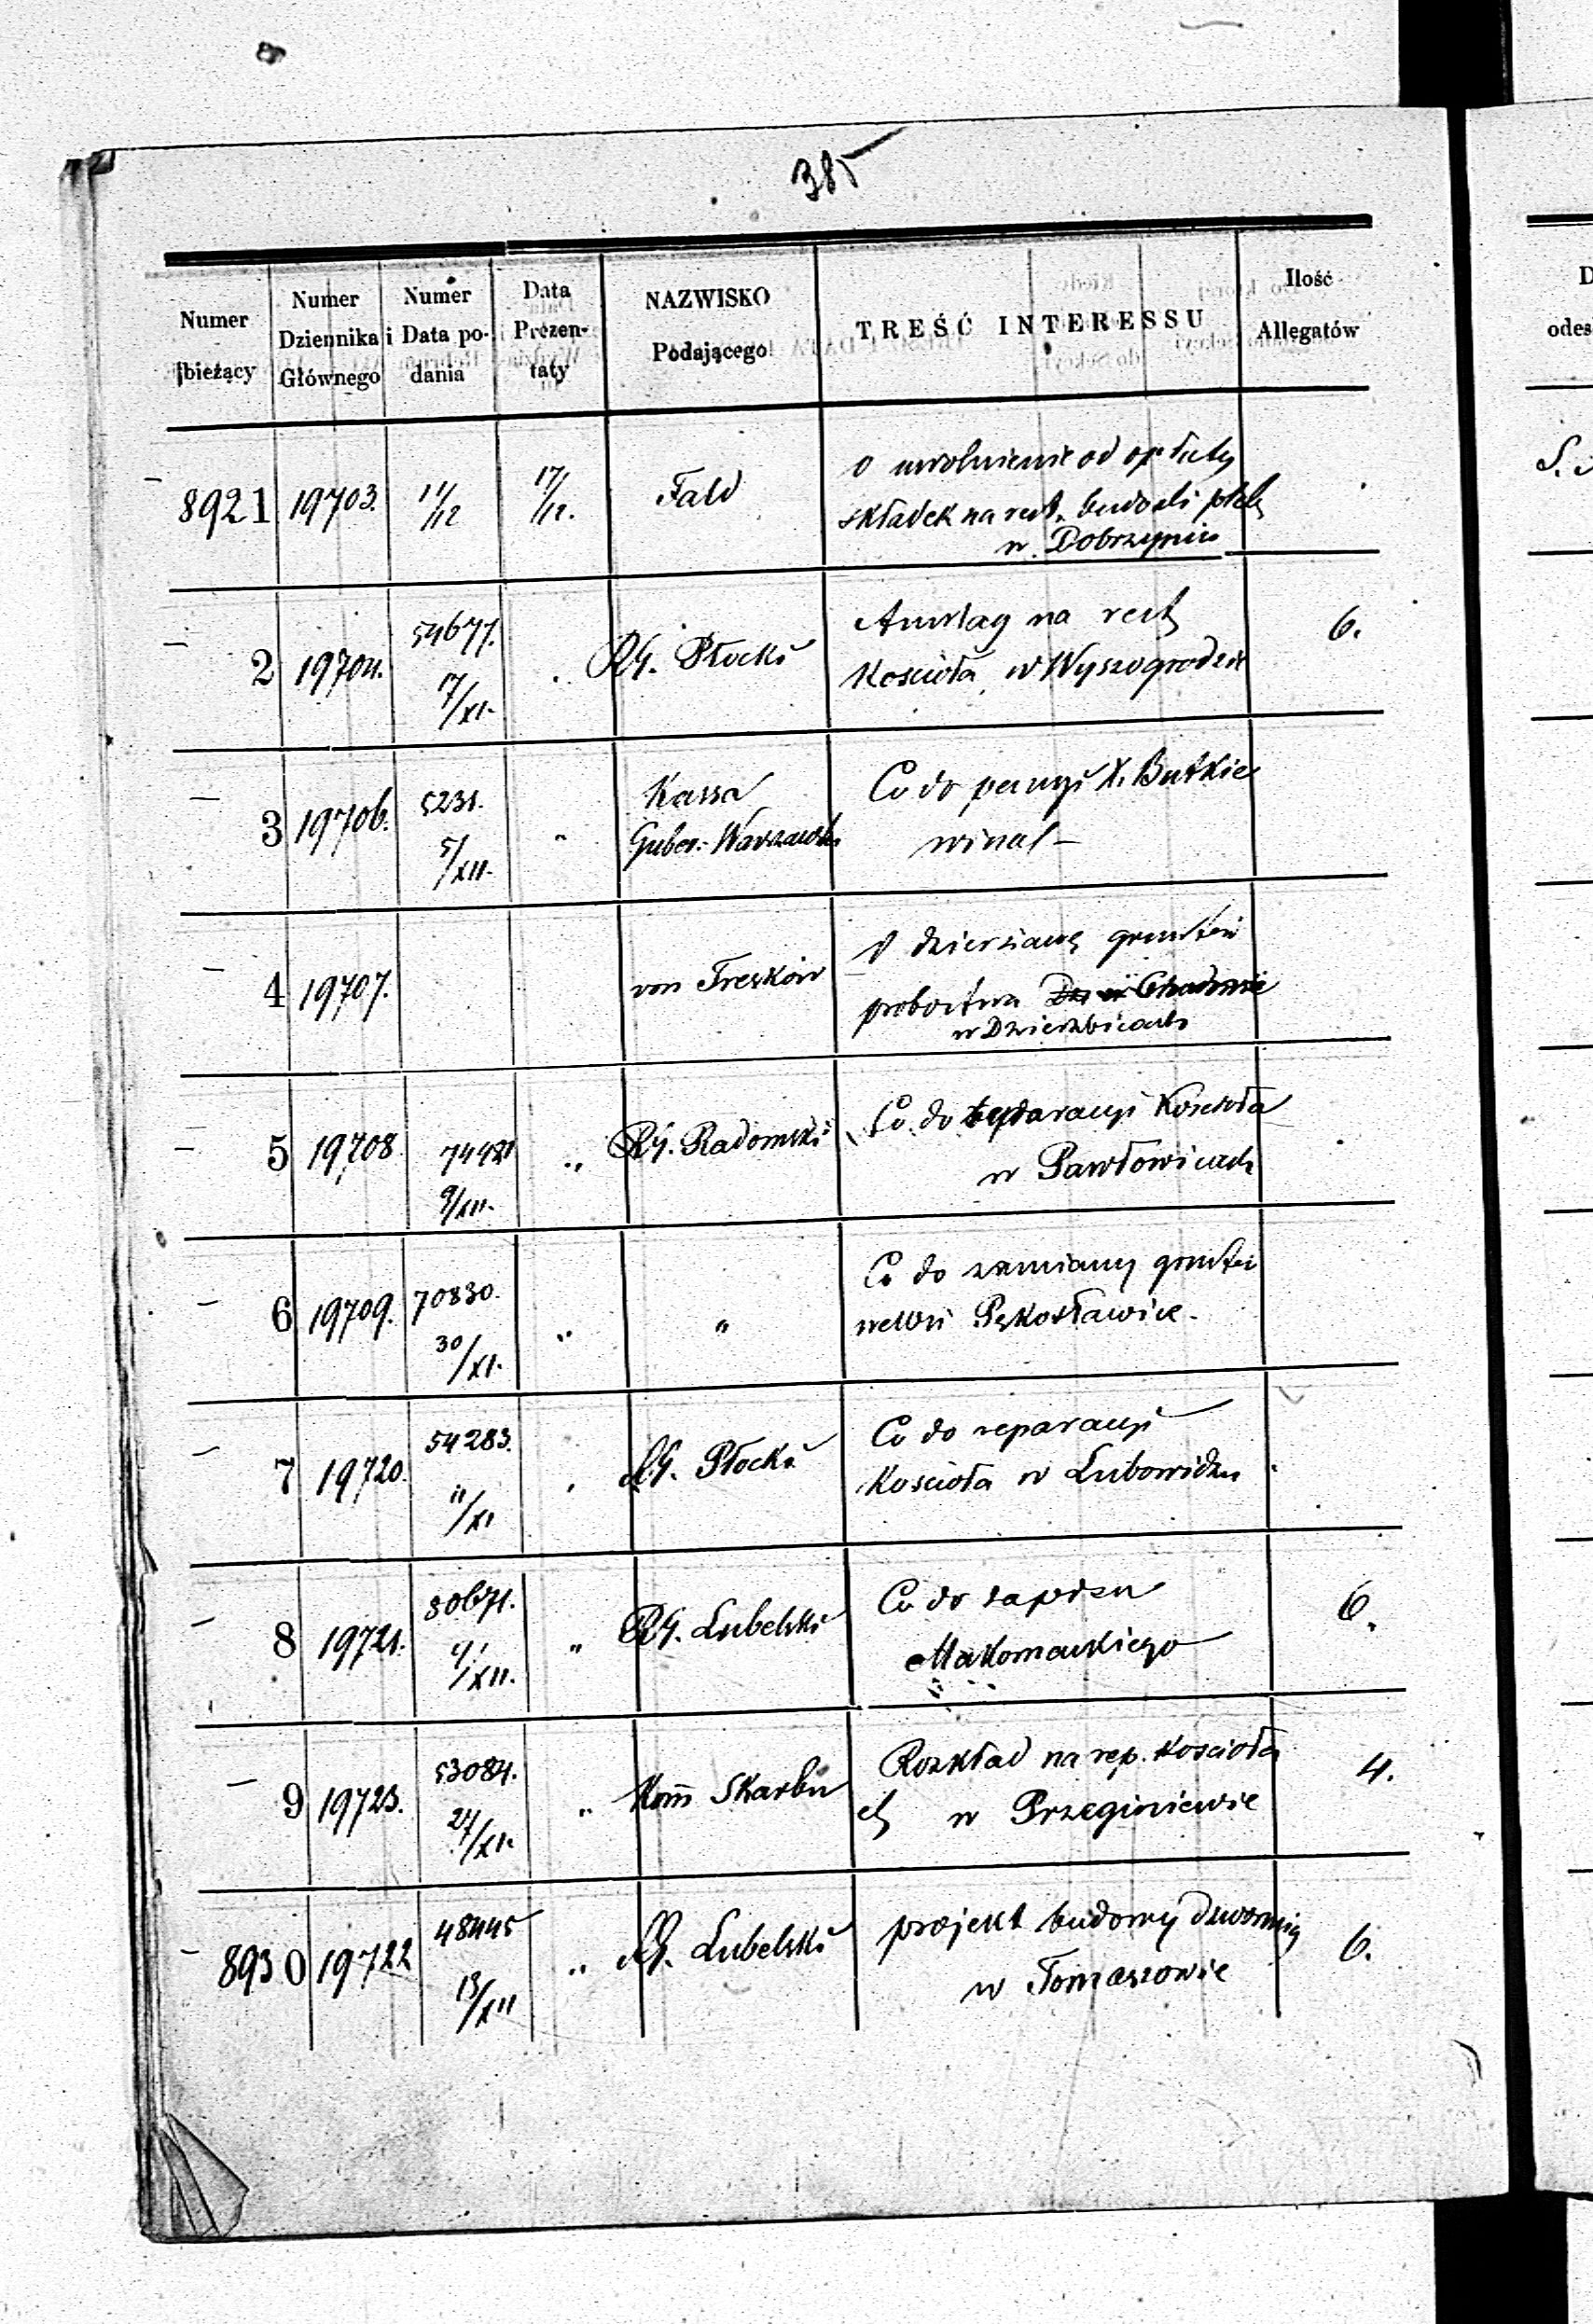 385
Numer bieżący
Numer Dziennika Głównego
Numer i Data podania
Data Prezentaty
NAZWISKO Podającego
TREŚĆ INTERESSU
Ilość Allegatów
8921 19703. 11/12 17/12. Fald
o uwolnienie od opłaty
składek na rest. budowli pleb
w Dobrzyniu
2 19704. 54677. 17/XI. " RG. Płocki 6.
Anszlag na rest
Kościoła w Wyszogrodzie
3 19706. 5231. 5/XII. " Kassa
Guber. Warszawsk
Co do pensyi X. Butkie
wicza
4 19707. von Treskow
O dzierżawę gruntów
probostwa
w Dzierzbicach
5 19708 74421 9/XII. " RG. Radomski
Co do reparacyi Kościoła
w Pawłowicach
6 19709. 70830. 30/XI. " "
Co do zamiany gruntu
we wsi Pękosławice.
7 19720. 54283. 11/XI " RG. Płocki
Co do reparacyi
Kościoła w Lubowidzu
8 19721. 80671. /XII. " RG. Lubelski 6.
Co do zapisu
9 19723. 53084. 27/XI. " Kom Skarbu 4.
Rozkład na rep. Kościoła
w
8930 19722 48445 13/XII " RG. Lubelski 6.
projekt budowy dzwonnicy
w Tomaszowie
D
odes
S.